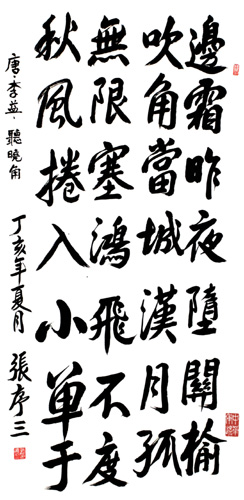 邊霜昨夜墮關榆
吹角當城漢月孤
無限塞鴻飛不度
秋風捲入小單于
唐·李益·聽曉角 丁亥年夏月 張序三